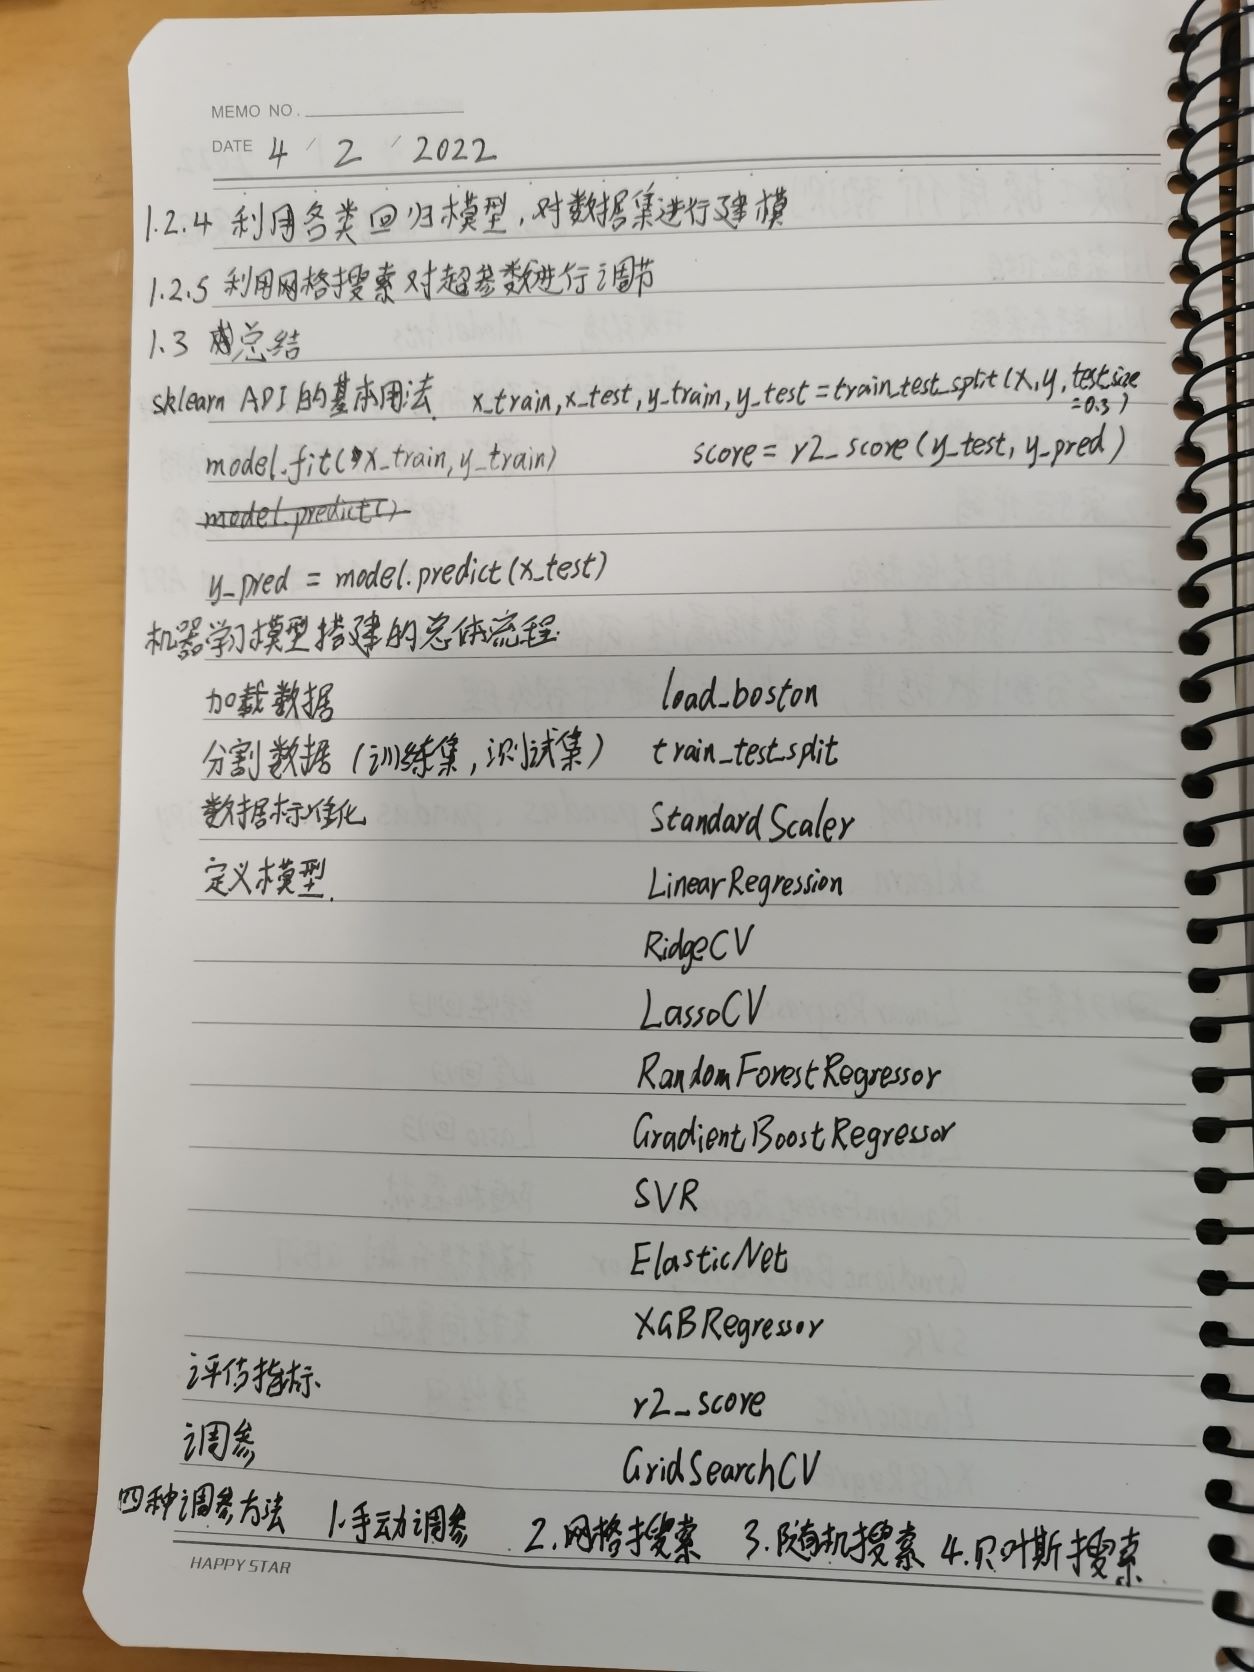 MEMO NO.
DATE 4 / 2 / 2022
1.2.4 利用各类回归模型,对数据集进行建模
1.2.5 利用网格搜索对超参数进行调节
1.3 总结
sklearn API的基本用法. x_train,x_test,y_train,y_test=train_test_split(x,y,test_size
=0.3)
model.fit(x_train,y_train) score=r2_score(y_test,y_pred)
model.predict()
y_pred = model.predict(x_test)
机器学习模型搭建的总体流程.
加载数据 load_boston
分割数据(训练集,测试集) train_test_split
数据标准化 StandardScaler
定义模型. LinearRegression
RidgeCV
LassoCV
RandomForestRegressor
GradientBoostRegressor
SVR
ElasticNet
XGBRegressor
评估指标. r2_score
调参 GridSearchCV
四种调参方法 1.手动调参 2.网格搜索 3.随机搜索 4.贝叶斯搜索.
HAPPY STAR